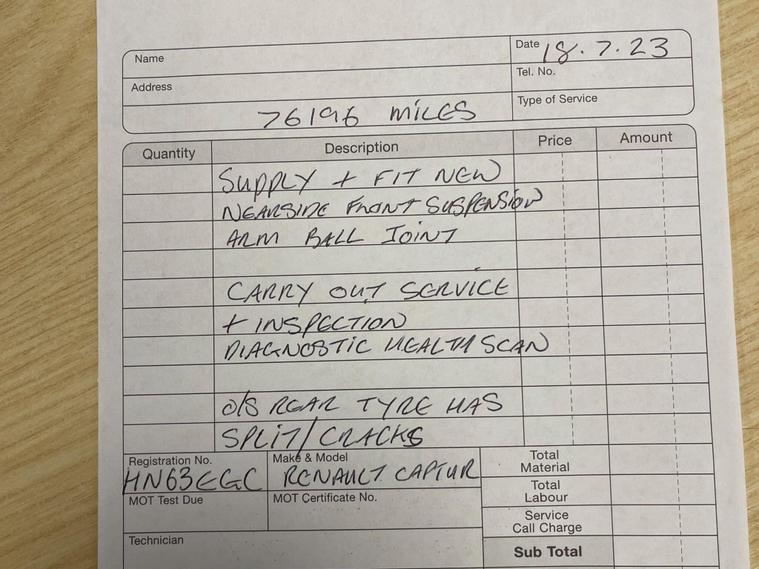 Name
Date 18.7.23
Address
Tel. No.
76196 MILES
Type of Service
Quantity Description Price Amount
SUPPLY + FIT NEW
NEARSIDE FRONT SUSPENSION
ARM BALL JOINT
CARRY OUT SERVICE
+ INSPECTION
DIAGNOSTIC HEALTH SCAN
O/S REAR TYRE HAS
SPLIT/CRACKS
Registration No. Make & Model
HN63EGC RENAULT CAPTUR
MOT Test Due MOT Certificate No.
Technician
Total
Material
Total
Labour
Service
Call Charge
Sub Total